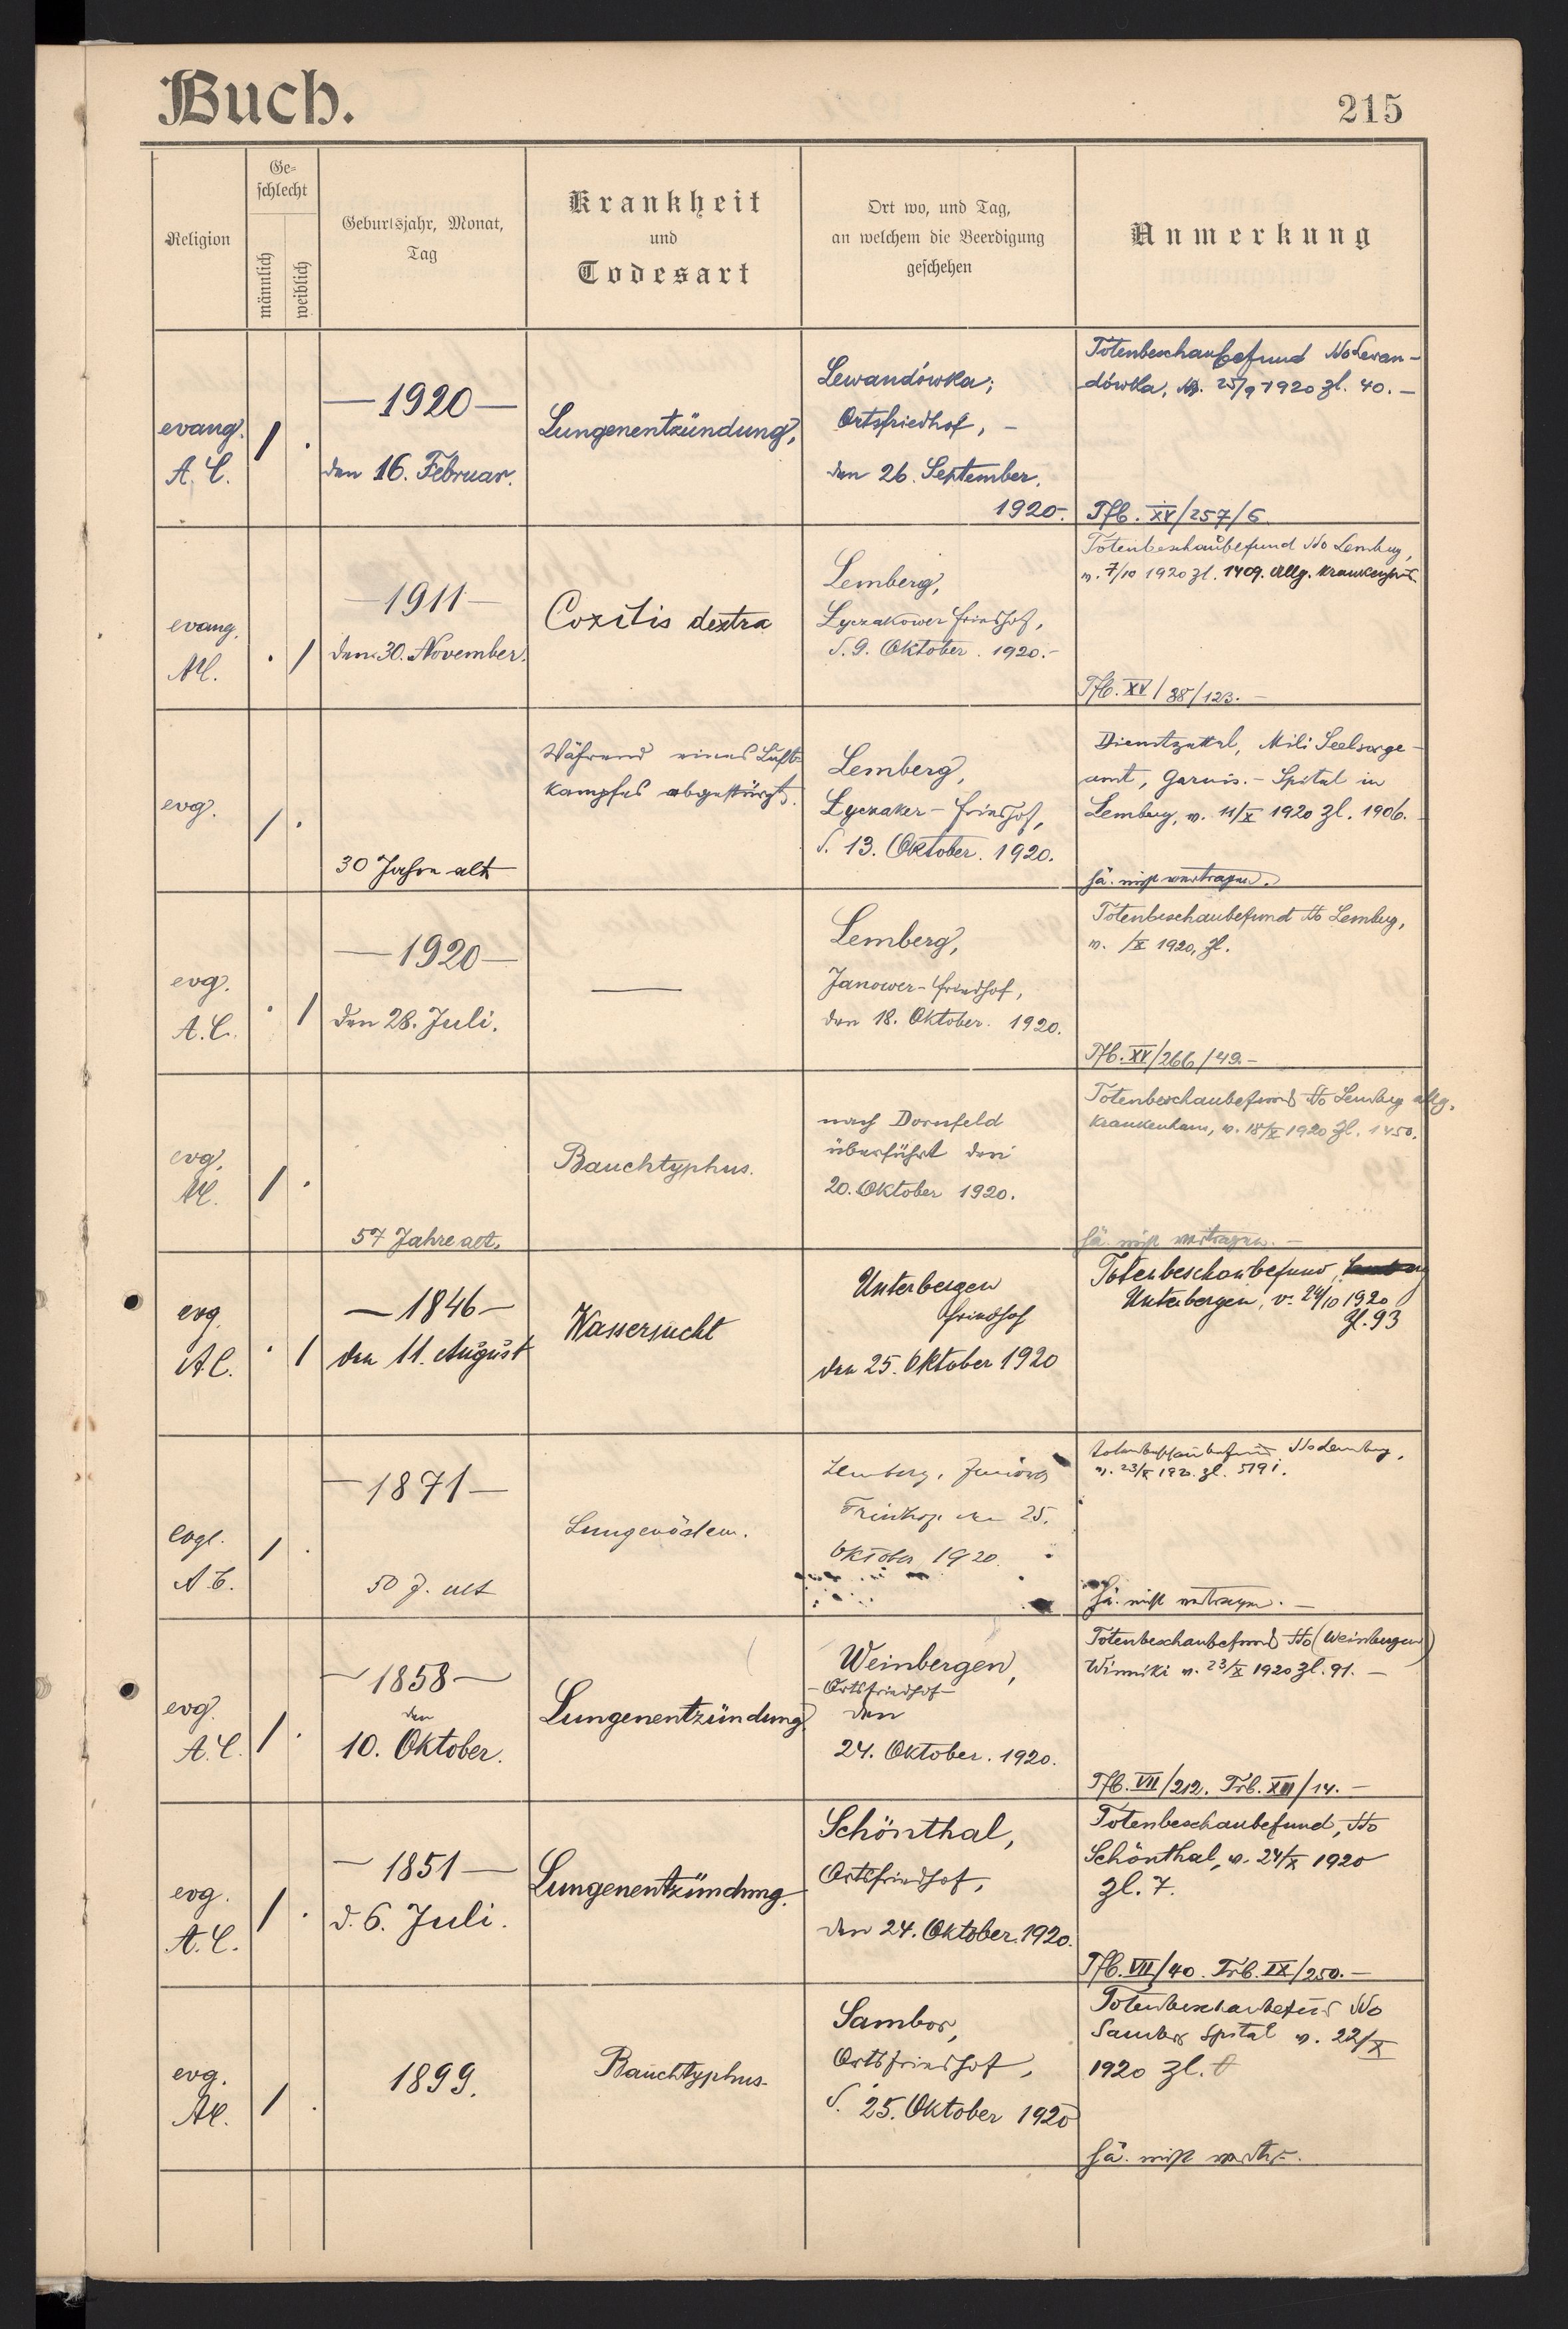 Buch.
215
Religion
Ge-
schlecht
männlich
weiblich
Geburtsjahr, Monat,
Tag
Krankheit
und
Todesart
Ort wo, und Tag,
an welchem die Beerdigung
geschehen
Anmerkung
evang.
A. C.
1 .
— 1920 —
den 16. Februar.
Lungenentzündung,
Lewandówka;
Ortsfriedhof, —
den 26. September.
1920.
Totenbeschaubefund No Lewan-
dówka, v. 25/9 1920 zl. 40. —
Tfb. XV/257/6
evang.
AC.
. 1
— 1911 —
den 30. November.
Coxitis dextra
Lemberg,
Lyczakower Friedhof,
d. 9. Oktober. 1920. —
Totenbeschaubefund No Lemberg,
v. 7/10 1920 zl. 1409. Allg. Krankenhaus
Tfb. XV/38/123. —
evg.
1 .
30 Jahre alt
Während eines Luft-
kampfes abgestürzt.
Lemberg,
Lyczaker-Friedhof,
d. 13. Oktober. 1920.
Dienstzettel, Mili Seelsorge-
amt, Garnis.- Spital in
Lemberg, v. 11/X 1920 Zl. 1906.
hä. nicht vertragen.
evg.
A. C.
. 1
— 1920 —
den 28. Juli.
—
Lemberg,
Janower-Friedhof,
den 18. Oktober. 1920.
Totenbeschaubefund No Lemberg,
v. /X 1920, zl.
Tfb. XV/266/49. —
evg.
AC.
1 .
57 Jahre alt.
Bauchtyphus.
nach Dornfeld
überführt den
20. Oktober 1920.
Totenbeschaubefund No Lemberg allg.
Krankenhaus, v. 18/X 1920 zl. 1450.
hä. nicht vertragen. —
evg.
A.C.
. 1
— 1846 —
den 11. August
Wassersucht
Unterbergen
Friedhof
den 25. Oktober 1920
Totenbeschaubefund,
Unterbergen, v. 24/10 1920
Zl. 93
evgl.
A. C.
1 .
— 1871 —
50 J. alt
Lungenödem.
Lemberg,
Friedhof den 25.
Oktober 1920.
Totenbeschaubefund No Lemberg,
v. 23/X 1920. zl. 5191.
hä. nicht vertragen. —
evg.
A. C.
1 .
— 1858 —
den
10. Oktober.
Lungenentzündung.
Weinbergen,
— Ortsfriedhof —
den
24. Oktober. 1920.
Totenbeschaubefund No (Weinbergen)
Winniki v. 23/X 1920 zl. 91. —
Tfb. VII/212. Trb. XIII/14. —
evg.
A. C.
1 .
— 1851 —
d. 6. Juli.
Lungenentzündung.
Schönthal,
Ortsfriedhof,
den 24. Oktober. 1920.
Totenbeschaubefund, No
Schönthal, v. 24/X 1920
zl. 7.
Tfb. VII/40. Trb. IX/250. —
evg.
AC.
1 .
1899.
Bauchtyphus.
Sambor,
Ortsfriedhof,
d. 25. Oktober 1920
Totenbeschaubefund No
Sambor Spital v. 22/X
1920 zl.
hä. nicht